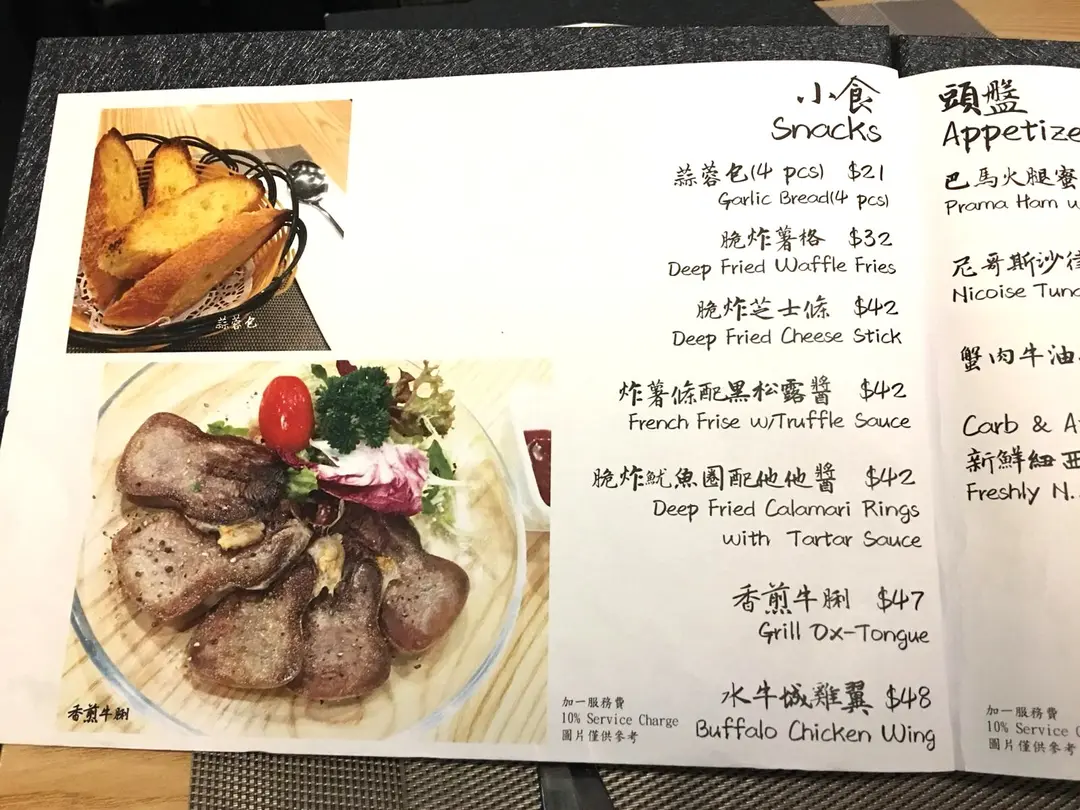 小食
Snacks
蒜蓉包(4 pcs) $21
Garlic Bread(4 pcs)
脆炸薯格 $32
Deep Fried Waffle Fries
脆炸芝士條 $42
Deep Fried Cheese Stick
炸薯條配黑松露醬 $42
French Frise w/Truffle Sauce
脆炸魷魚圈配他他醬 $42
Deep Fried Calamari Rings
with Tartar Sauce
香煎牛脷 $47
Grill Ox-Tongue
水牛城雞翼 $48
Buffalo Chicken Wing
加一服務費
10% Service Charge
圖片僅供參考
蒜蓉包
香煎牛脷
頭盤
Appetize
巴馬火腿蜜
Prama Ham
尼哥斯沙律
Nicoise Tuna
蟹肉牛油
Carb &
新鮮紐西
Freshly N.
加一服務費
10% Service
圖片僅供參考